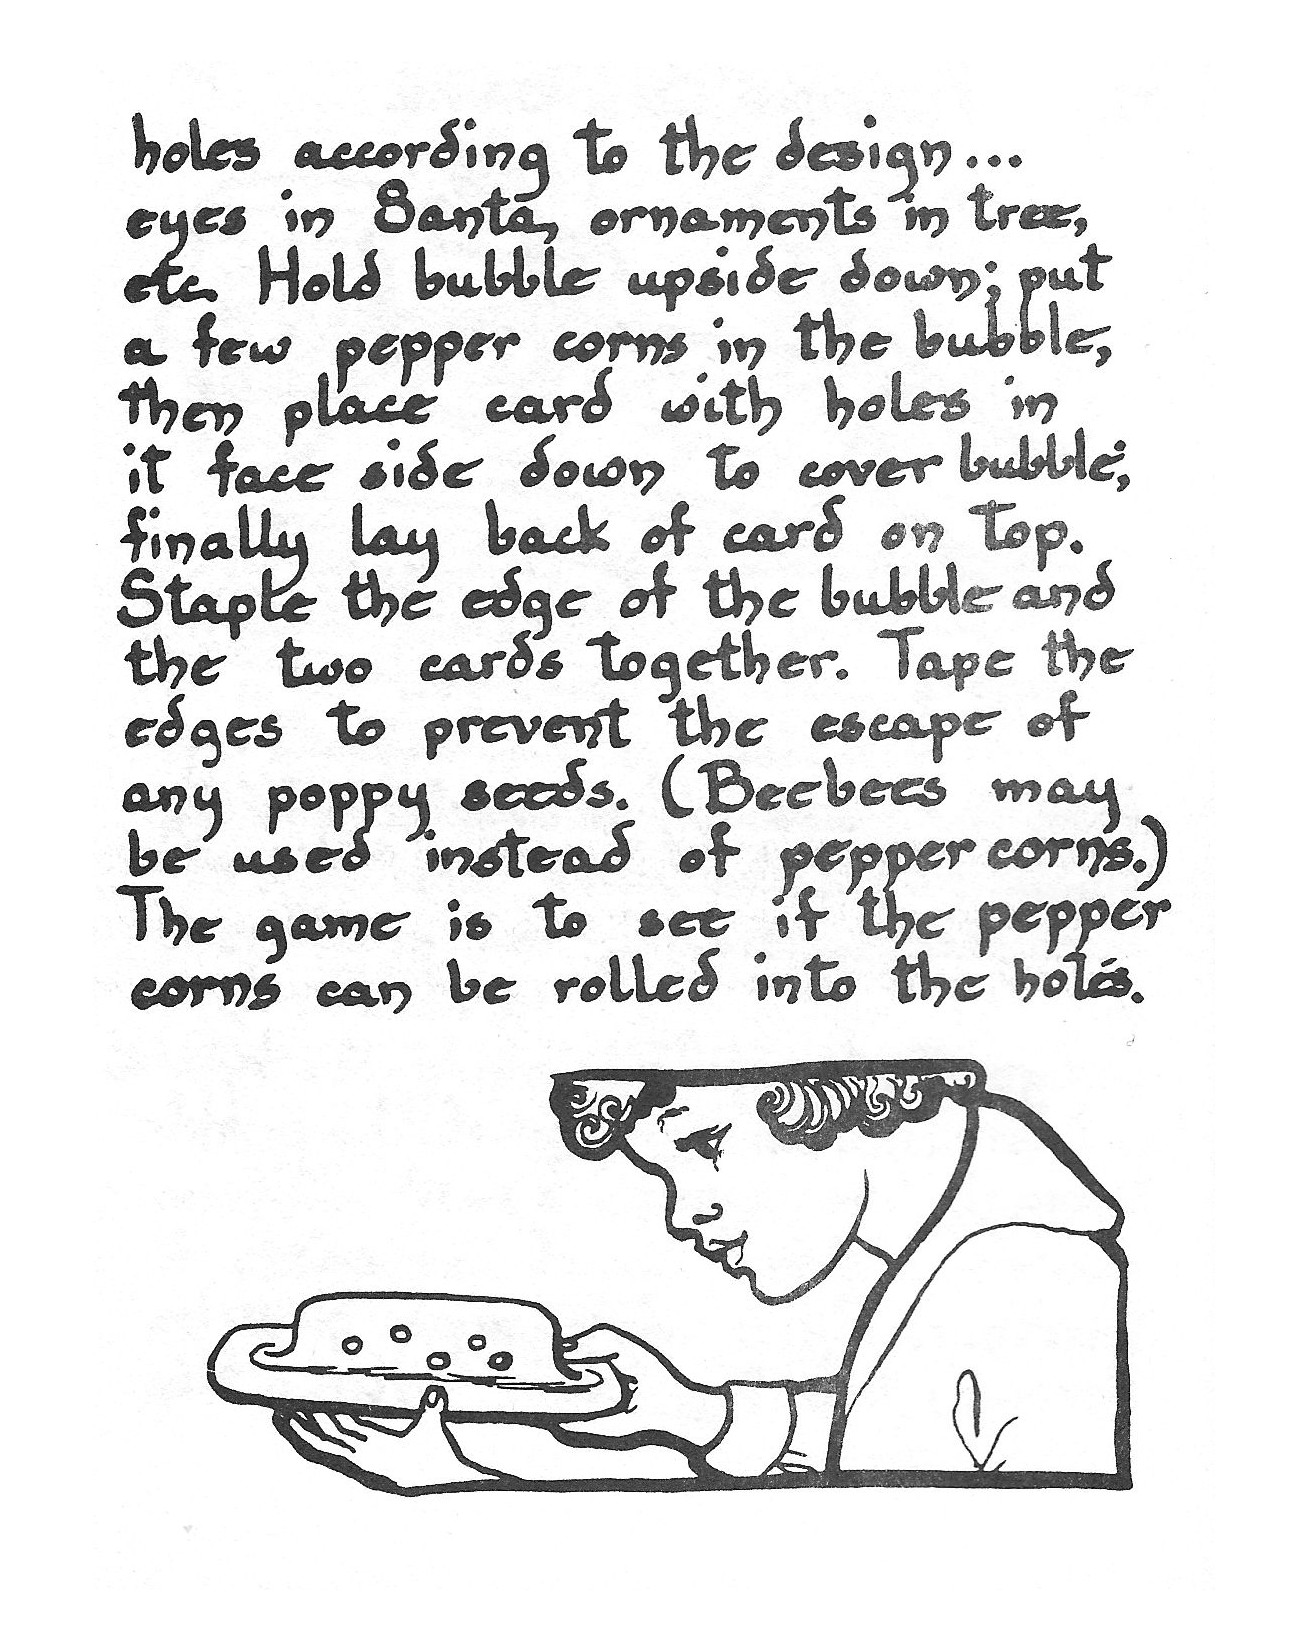 holes according to the design...
eyes in Santa, ornaments in tree,
etc. Hold bubble upside down; put
a few pepper corns in the bubble,
then place card with holes in
it face side down to cover bubble;
finally lay back of card on top.
Staple the edge of the bubble and
the two cards together. Tape the
edges to prevent the escape of
any poppy seeds. (Beebees may
be used instead of pepper corns.)
The game is to see if the pepper
corns can be rolled into the holes.